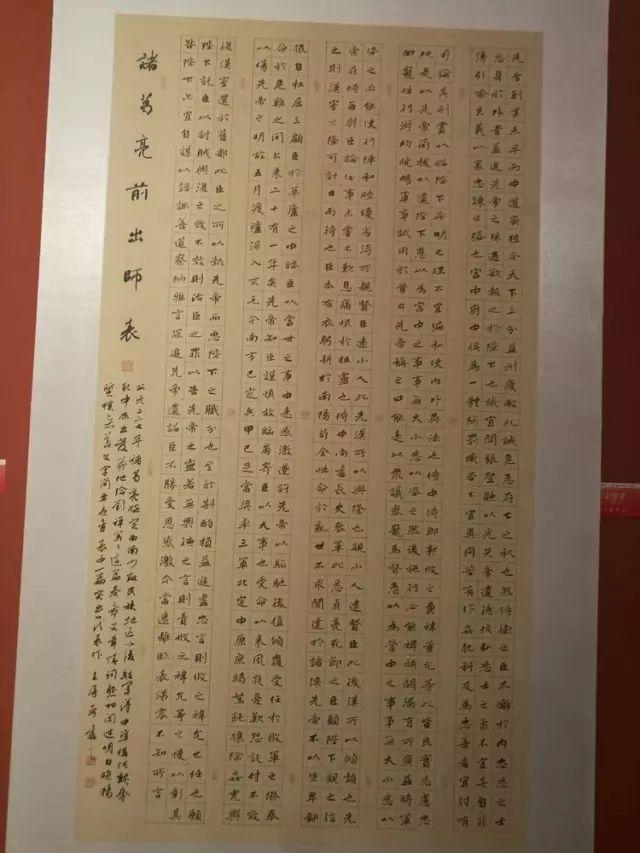 先帝創業未半而中道崩殂今天下三分益州疲敝此誠危急存亡之秋也然侍衛之臣不懈於內忠志之士
忘身於外者蓋追先帝之殊遇欲報之於陛下也誠宜開張聖聽以光先帝遺德恢弘志士之氣不宜妄自菲
薄引喻失義以塞忠諫之路也宮中府中俱為一體陟罰臧否不宜異同若有作姦犯科及為忠善者宜付有
司論其刑賞以昭陛下平明之理不宜偏私使內外異法也侍中侍郎郭攸之費禕董允等此皆良實志慮忠
純是以先帝簡拔以遺陛下愚以為宮中之事事無大小悉以咨之然後施行必能裨補闕漏有所廣益將軍
向寵性行淑均曉暢軍事試用於昔日先帝稱之曰能是以眾議舉寵為督愚以為營中之事事無大小悉以
咨之必能使行陣和睦優劣得所親賢臣遠小人此先漢所以興隆也親小人遠賢臣此後漢所以傾頹也先
帝在時每與臣論此事未嘗不歎息痛恨於桓靈也侍中尚書長史參軍此悉貞亮死節之臣願陛下親之信
之則漢室之隆可計日而待也臣本布衣躬耕於南陽苟全性命於亂世不求聞達於諸侯先帝不以臣卑鄙
猥自枉屈三顧臣於草廬之中諮臣以當世之事由是感激遂許先帝以驅馳後值傾覆受任於敗軍之際奉
命於危難之間爾來二十有一年矣先帝知臣謹慎故臨崩寄臣以大事也受命以來夙夜憂歎恐託付不效
以傷先帝之明故五月渡瀘深入不毛今南方已定兵甲已足當獎率三軍北定中原庶竭駑鈍攘除姦兇興
復漢室還於舊都此臣之所以報先帝而忠陛下之職分也至於斟酌損益進盡忠言則攸之禕允之任也願
陛下託臣以討賊興復之效不效則治臣之罪以告先帝之靈若無興德之言則責攸之禕允等之慢以彰其
咎陛下亦宜自謀以諮諏善道察納雅言深追先帝遺詔臣不勝受恩感激今當遠離臨表涕零不知所言
諸葛亮前出師表
公元二二七年諸葛亮在定西南少數民族地區後駐軍漢中準備伐魏
出發前他給劉禪寫了這篇奏章文章情詞懇切闡述明白曉暢
質樸